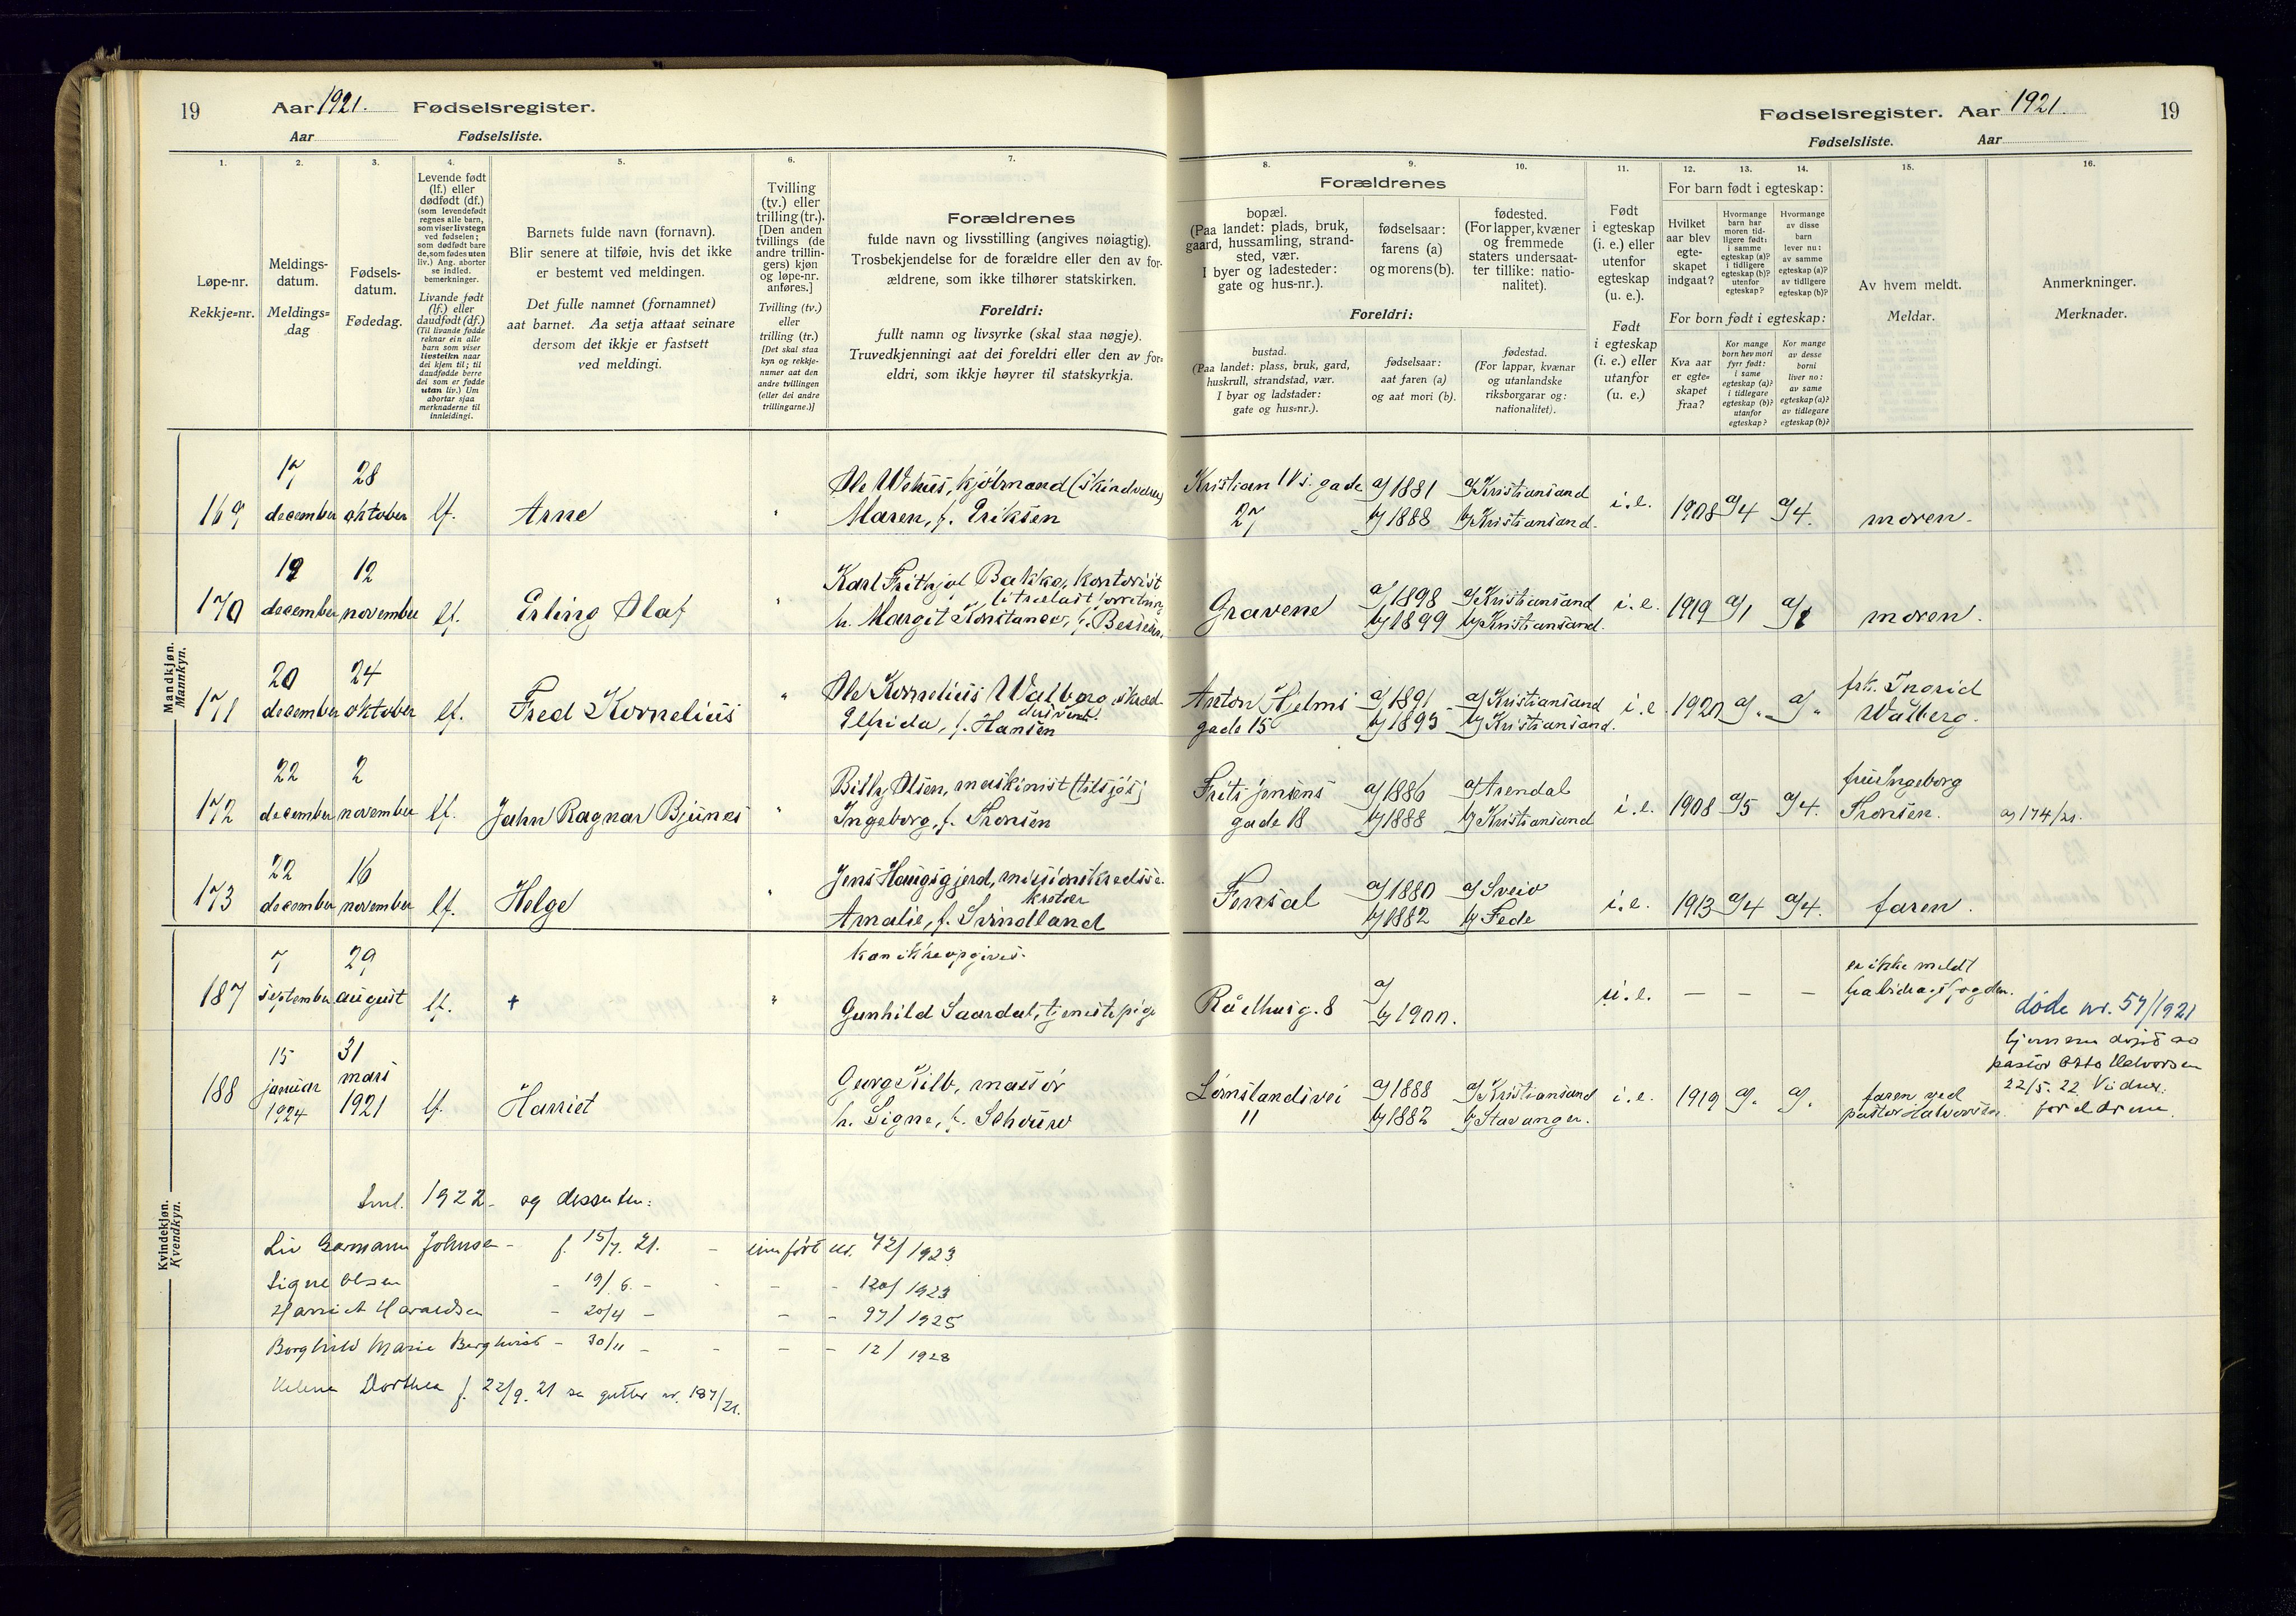 19 Aar 1921. Fødselsregister.
Aar Fødselsliste.
1. 2. 3. 4. 5. 6. 7.
Løpe-nr.
Rekkje=nr.
Meldings-
datum.
Meldings=
dag
Fødsels-
datum.
Fødedag.
Levende født
(lf.) eller
dødfødt (df.)
(som levendefødt
regnes alle barn,
som viser livstegn
ved fødselen;
som dødfødt bare
de, som fødes uten
liv.) Ang. aborter
se indled.
bemerkninger.
Livande født
(lf.) eller
daudfødt (df.)
(Til livande fødde
reknar ein alle
barn som viser
livsteikn naar
dei kjem til; til
daudfødde berre
dei som er fødde
utan liv.) Um
abortar sjaa
merknaderne til
innleidingi.
Barnets fulde navn (fornavn).
Blir senere at tilføie, hvis det ikke
er bestemt ved meldingen.
Det fulle namnet (fornamnet)
aat barnet. Aa setja attaat seinare
dersom det ikkje er fastsett
ved meldingi.
Tvilling
(tv.) eller
trilling (tr.).
[Den anden
tvillings (de
andre trillin-
gers) kjøn
og løpe-nr.
anføres.]
Tvilling (tv.)
eller
trilling (tr.)
[Det skal staa
kyn og rekkje-
numer aat den
andre tvillingen
(eller dei andre
trillingarne.)]
Forældrenes
fulde navn og livsstilling (angives nøiagtig).
Trosbekjendelse for de forældre eller den av for-
ældrene, som ikke tilhører statskirken.
Foreldri:
fullt namn og livsyrke (skal staa nøgje).
Truvedkjenningi aat dei foreldri eller den av for=
eldri, som ikkje høyrer til statskyrkja.
Mandkjøn.
Mannkyn.
17 28
169 december oktober lf. Arne "
Ole Wehus, kjøbmand (skindvarer)
Maren, f. Eriksen
19 12
170 december november lf. Erling Olaf "
Karl Frithjof Bakke, kontorist
h. Margit Konstance, f.
20 24
171 december oktober lf. Fred Kornelius "
Ole Kornelius Walberg, skræd-
dersvend
Elfrida, f. Hansen
22 2
172 december november lf. Jahn Ragnar Bjunes "
Billy Olsen, maskinist (tilsjøs)
Ingeborg, f. Thonsen
22 16
173 december november lf. Helge "
Jens Haugsgjerd, missionskredsse-
kretær
Amalie, f. Svindland
Kvindekjøn.
Kvendkyn.
7 29
187 september august lf. + "
kan ikke opgives.
Gunhild Saardal, tjenestepige
15 31
188 januar mars
1924 1921 lf. Harriet
Georg Kilb, massør
h. Signe, f.
1922 - og dessuten:
Liv Garmann Johnsen - f. 15/7. 21. - innført nr. 42/1923
Signe Olsen - 19/6. - - - - 120/1923
Harriet Haraldsen - 20/4 - - - 97/1925
Borghild Marie Berghvist - 30/11 - - - - 12/1928
Helene Dorthea f. 22/9. 21 se gutter nr. 187/21.
Fødselsregister. Aar 1921. 19
Fødselsliste. Aar
8. 9. 10. 11. 12. 13. 14. 15. 16.
Forældrenes
bopæl.
(Paa landet: plads, bruk,
gaard, hussamling, strand-
sted, vær.
I byer og ladesteder:
gate og hus-nr.).
fødselsaar:
farens (a)
og morens (b).
fødested.
(For lapper, kvæner
og fremmede
staters undersaat-
ter tillike: natio-
nalitet).
Foreldri:
bustad.
(Paa landet: plass, bruk, gard,
huskrull, strandstad, vær.
I byar og ladstader:
gate og hus=nr.).
fødselsaar:
aat faren (a)
og aat mori (b).
fødestad.
(For lappar, kvænar
og utanlandske
riksborgarar og:
nationalitet).
Født
i egteskap
(i. e.) eller
utenfor
egteskap
(u. e.).
Født
i egteskap
(i. e.) eller
utanfor
(u. e.)
For barn født i egteskap:
Hvilket
aar blev
egte-
skapet
indgaat?
Hvormange
barn har
moren tid-
ligere født:
i samme
egteskap (a)?
i tidligere
egteskap (b)?
utenfor
egteskap?
Hvormange
av disse
barn
lever nu:
av samme
egteskap (a)?
av tidligere
egteskap (b)?
For born født i egteskap:
Kva aar
er egte=
skapet
fraa?
Kor mange
born hev mori
fyrr født:
i same
egteskap (a)?
i tidlegare
egteskap (b)?
utanfor
egteskap?
Kor mange
av desse
borni
liver no:
av same
egteskap (a)?
av tidlegare
egteskap (b)?
Av hvem meldt.
Meldar.
Anmerkninger.
Merknader.
Kristian IVs. gade a/1881 a/Kristiansand
27 b/1888 b/Kristiansand. i. e. 1908 a/4 a/4. moren.
Gravene a/1898 a/Kristiansand i. e. 1919 a/1 a/1 moren.
b/1899 b/Kristiansand.
Anton Hjelms a/1891 a/Kristiansand i. e. 1920 a/" a/" frk. Ingrid
gade 15 b/1893 b/Kristiansand. Walberg.
Frits Jensens a/1886 a/Arendal i. e. 1908 a/5 a/4. fru Ingeborg
gade 18 b/1888 b/Kristiansand Thonsen. og 174/21.
Fensal a/1880 a/Sveio i. e. 1913 a/4 a/4. faren.
b/1882 b/Fede
Rådhusg. 8 a/
b/1900. u. e. — — — er ikke meldt
fra bidragsfogden. døde nr. 57/1921
Lømslandsvei a/1888 a/Kristiansand i. e. 1919 a/" a/" faren ved
11 b/1882 b/Stavanger. pastor Halvorsen
hjemme døpt av
pastor Otto Halvorsen
22/5. 22. Vidner:
forældrene.